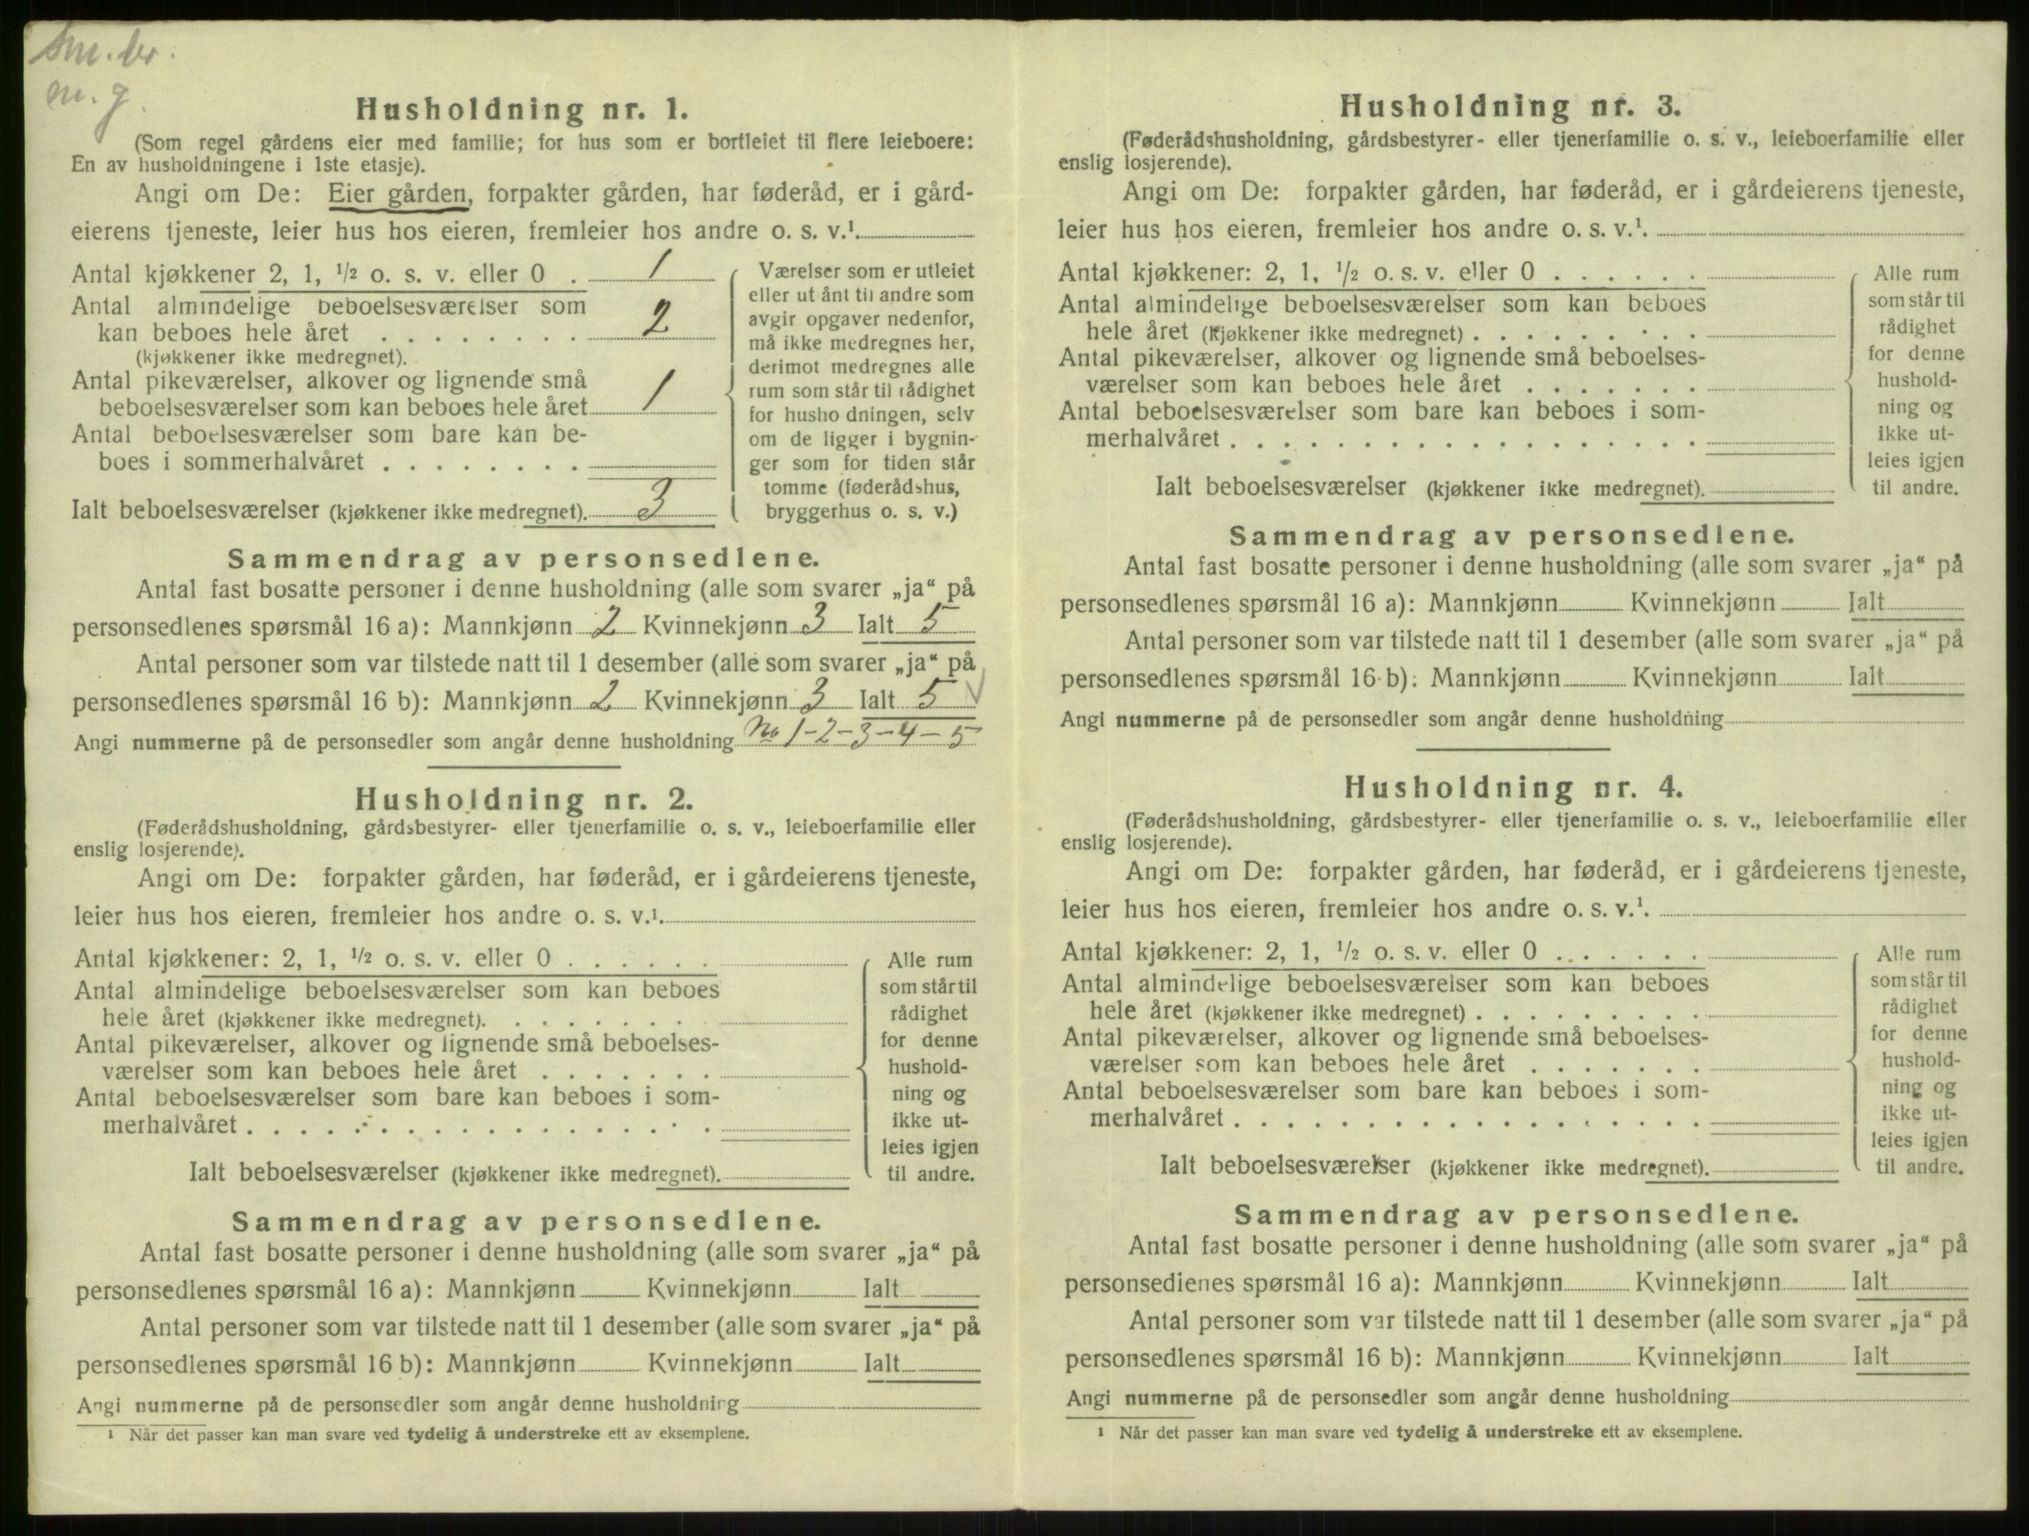 Sm. br.
m. g.
Husholdning nr. 1.
(Som regel gårdens eier med familie; for hus som er bortleiet til flere leieboere:
En av husholdningene i 1ste etasje).
Angi om De: Eier gården, forpakter gården, har føderåd, er i gård-
eierens tjeneste, leier hus hos eieren, fremleier hos andre o. s. v.¹
Antal kjøkkener 2, 1, ½ o. s. v. eller 0 . 1
Antal almindelige beboelsesværelser som
kan beboes hele året . . . . . . . . 2
(kjøkkener ikke medregnet).
Antal pikeværelser, alkover og lignende små
beboelsesværelser som kan beboes hele året 1
Antal beboelsesværelser som bare kan be-
boes i sommerhalvåret . . . . . . . .
Ialt beboelsesværelser (kjøkkener ikke medregnet). 3
Værelser som er utleiet
eller ut ånt til andre som
avgir opgaver nedenfor,
må ikke medregnes her,
derimot medregnes alle
rum som står til rådighet
for husho dningen, selv
om de ligger i bygnin-
ger som for tiden står
tomme (føderådshus,
bryggerhus o. s. v.)
Sammendrag av personsedlene.
Antal fast bosatte personer i denne husholdning (alle som svarer „ja“ på
personsedlenes spørsmål 16 a): Mannkjønn 2 Kvinnekjønn 3 Ialt 5
Antal personer som var tilstede natt til 1 desember (alle som svarer „ja“ på
personsedlenes spørsmål 16 b): Mannkjønn 2 Kvinnekjønn 3 Ialt 5 √
Angi nummerne på de personsedler som angår denne husholdning No 1-2-3-4-5
Husholdning nr. 2.
(Føderådshusholdning, gårdsbestyrer- eller tjenerfamilie o. s. v., leieboerfamilie eller
enslig losjerende).
Angi om De: forpakter gården, har føderåd, er i gårdeierens tjeneste,
leier hus hos eieren, fremleier hos andre o. s. v.¹.
Antal kjøkkener: 2, 1, ½ o. s. v. eller 0 . . . . . .
Antal almindelige beboelsesværelser som kan beboes
hele året (kjøkkener ikke medregnet). . . . . . . . .
Antal pikeværelser, alkover og lignende små beboelses-
værelser som kan beboes hele året . . . . . . .
Antal beboelsesværelser som bare kan beboes i som-
merhalvåret . . . . . . . . . . . . . . . . . .
Ialt beboelsesværelser (kjøkkener ikke medregnet).
Alle rum
som står til
rådighet
for denne
hushold-
ning og
ikke ut-
leies igjen
til andre.
Sammendrag av personsedlene.
Antal fast bosatte personer i denne husholdning (alle som svarer „ja“ på
personsedlenes spørsmål 16 a): Mannkjønn Kvinnekjønn Ialt
Antal personer som var tilstede natt til 1 desember (alle som svarer „ja“ på
personsedlenes spørsmål 16 b): Mannkjønn Kvinnekjønn Ialt
Angi nummerne på de personsedler som angår denne husholdning
¹ Når det passer kan man svare ved tydelig å understreke ett av eksemplene.
Husholdning nr. 3.
(Føderådshusholdning, gårdsbestyrer- eller tjenerfamilie o. s. v., leieboerfamilie eller
enslig losjerende).
Angi om De: forpakter gården, har føderåd, er i gårdeierens tjeneste,
leier hus hos eieren, fremleier hos andre o. s. v.¹.
Antal kjøkkener: 2, 1, ½ o. s. v. eller 0 . . . . . .
Antal almindelige beboelsesværelser som kan beboes
hele året (kjøkkener ikke medregnet) . . . . . . . . .
Antal pikeværelser, alkover og lignende små beboelses-
værelser som kan beboes hele året . . . . . . .
Antal beboelsesværelser som bare kan beboes i som-
merhalvåret . . . . . . . . . . . . . . . . . .
Ialt beboelsesværelser (kjøkkener ikke medregnet).
Alle rum
som står til
rådighet
for denne
hushold-
ning og
ikke ut-
leies igjen
til andre.
Sammendrag av personsedlene.
Antal fast bosatte personer i denne husholdning (alle som svarer „ja“ på
personsedlenes spørsmål 16 a): Mannkjønn Kvinnekjønn Ialt
Antal personer som var tilstede natt til 1 desember (alle som svarer „ja“ på
personsedlenes spørsmål 16 b): Mannkjønn Kvinnekjønn Ialt
Angi nummerne på de personsedler som angår denne husholdning
Husholdning nr. 4.
(Føderådshusholdning, gårdsbestyrer- eller tjenerfamilie o. s. v., leieboerfamilie eller
enslig losjerende).
Angi om De: forpakter gården, har føderåd, er i gårdeierens tjeneste,
leier hus hos eieren, fremleier hos andre o. s. v.¹.
Antal kjøkkener: 2, 1, ½ o. s. v. eller 0 . . . . . .
Antal almindelige beboelsesværelser som kan beboes
hele året (kjøkkener ikke medregnet) . . . . . . . . .
Antal pikeværelser, alkover og lignende små beboelses-
værelser som kan beboes hele året . . . . . . .
Antal beboelsesværelser som bare kan beboes i som-
merhalvåret . . . . . . . . . . . . . . . . . .
Ialt beboelsesværelser (kjøkkener ikke medregnet).
Alle rum
som står til
rådighet
for denne
hushold-
ning og
ikke ut-
leies igjen
til andre.
Sammendrag av personsedlene.
Antal fast bosatte personer i denne husholdning (alle som svarer „ja“ på
personsedlenes spørsmål 16 a): Mannkjønn Kvinnekjønn Ialt
Antal personer som var tilstede natt til 1 desember (alle som svarer „ja“ på
personsedlenes spørsmål 16 b): Mannkjønn Kvinnekjønn Ialt
Angi nummerne på de personsedler som angår denne husholdning
¹ Når det passer kan man svare ved tydelig å understreke ett av eksemplene.